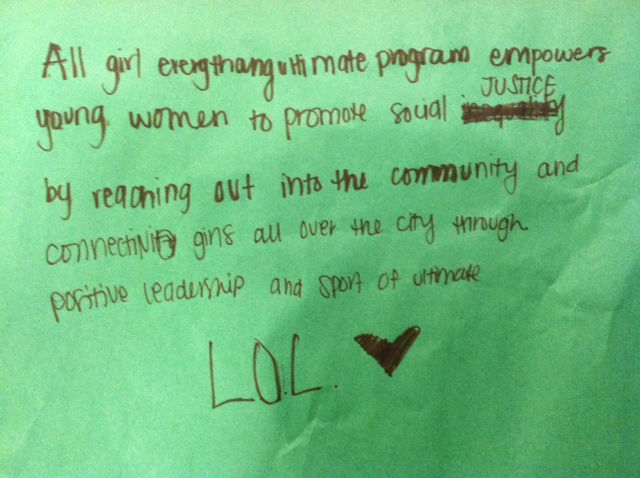 All girl everythangultimate program empowers
JUSTICE
young women to promote social inequality
by reaching out into the community and
connectinity girls all over the city through
positive leadership and sport of ultimate
L.O.L.